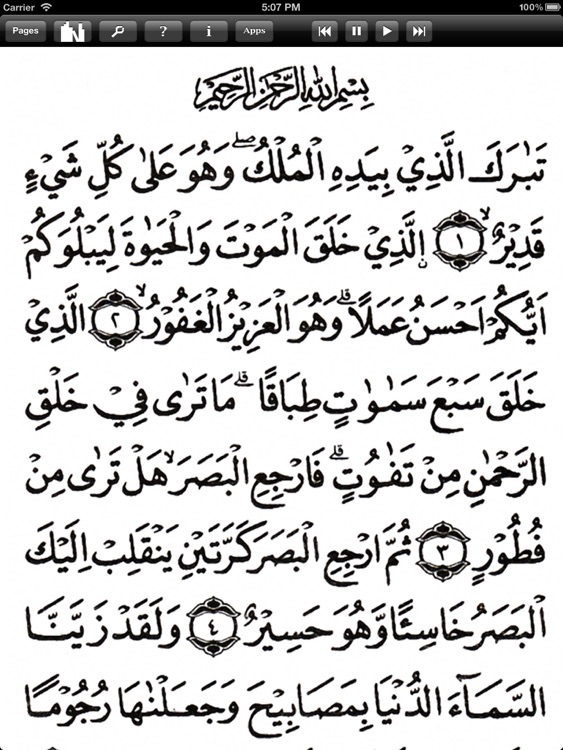 Carrier 5:07 PM 100%
Pages ? i Apps
بِسْمِ اللهِ الرَّحْمٰنِ الرَّحِيْمِ
تَبٰرَكَ الَّذِيْ بِيَدِهِ الْمُلْكُ ۖ وَهُوَ عَلٰى كُلِّ شَيْءٍ
قَدِيْرٌ ۙ ١ اِۨلَّذِيْ خَلَقَ الْمَوْتَ وَالْحَيٰوةَ لِيَبْلُوَكُمْ
اَيُّكُمْ اَحْسَنُ عَمَلًا ۗ وَهُوَ الْعَزِيْزُ الْغَفُوْرُ ۙ ٢ الَّذِيْ
خَلَقَ سَبْعَ سَمٰوٰتٍ طِبَاقًا ۗ مَا تَرٰى فِيْ خَلْقِ
الرَّحْمٰنِ مِنْ تَفٰوُتٍ ۗ فَارْجِعِ الْبَصَرَ ۙ هَلْ تَرٰى مِنْ
فُطُوْرٍ ٣ ثُمَّ ارْجِعِ الْبَصَرَ كَرَّتَيْنِ يَنْقَلِبْ اِلَيْكَ
الْبَصَرُ خَاسِئًا وَّهُوَ حَسِيْرٌ ٤ وَلَقَدْ زَيَّنَّا
السَّمَآءَ الدُّنْيَا بِمَصَابِيْحَ وَجَعَلْنٰهَا رُجُوْمًا